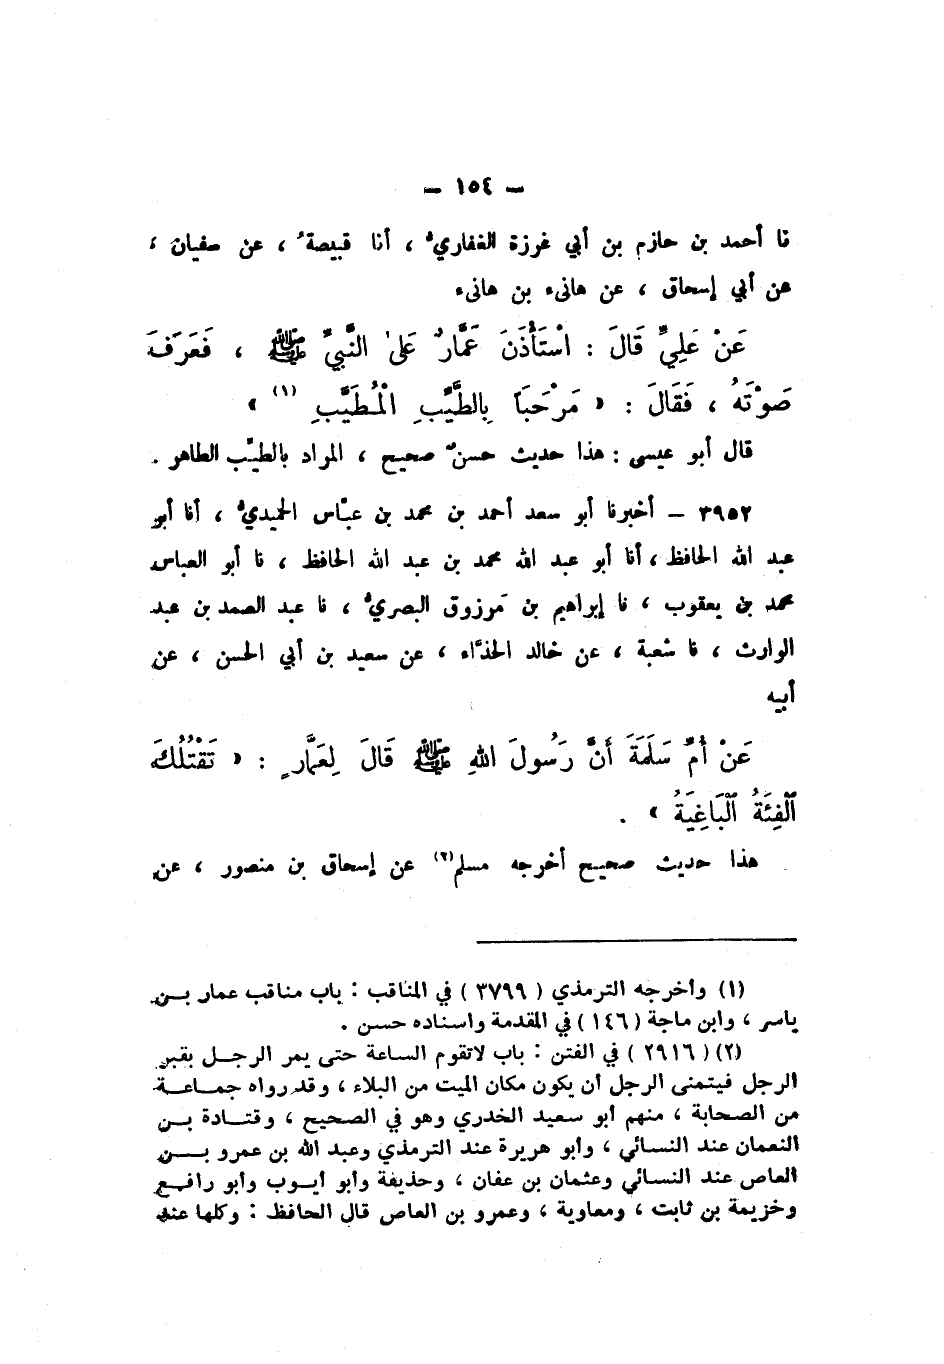 – ١٥٤ –
نا أحمد بن حازم بن أبي غرزة الغفاريُّ ، أنا قبيصةُ ، عن سفيان ،
عن أبي إسحاق ، عن هانىء بن هانىء
عَنْ عَلِيٍّ قَالَ : اسْتَأْذَنَ عَمَّارٌ عَلىٰ النَّبِيِّ ﷺ ، فَعَرَفَ
صَوْتَهُ ، فَقَالَ : « مَرْحَبَاً بِالطَّيَّبِ الْمُطَيَّبِ (١) »
قال أبو عيسى : هذا حديث حسنٌ صحيح ، المراد بالطيّب الطاهر .
٣٩٥٢ – أخبرنا أبو سعد أحمد بن محمد بن عبّاس الحميديُّ ، أنا أبو
عبد الله الحافظ ، أنا أبو عبد الله محمد بن عبد الله الحافظ ، نا أبو العباس
محمد بن يعقوب ، نا إبراهيم بن مرزوق البصريُّ ، نا عبد الصمد بن عبد
الوارث ، نا شعبة ، عن خالد الحذّاء ، عن سعيد بن أبي الحسن ، عن
أبيه
عَنْ أُمِّ سَلَمَةَ أَنَّ رَسُولَ اللهِ ﷺ قَالَ لِعَمَّارٍ : « تَقْتُلُكَ
ٱلْفِئَةُ ٱلْبَاغِيَةُ » .
هذا حديث صحيح أخرجه مسلم(٢) عن إسحاق بن منصور ، عن
(١) وأخرجه الترمذي ( ٣٧٩٩ ) في المناقب : باب مناقب عمار بـن
ياسر ، وابن ماجة ( ١٤٦ ) في المقدمة واسناده حسن .
(٢) ( ٢٩١٦ ) في الفتن : باب لاتقوم الساعة حتى يمر الرجـل بقبر
الرجل فيتمنى الرجل أن يكون مكان الميت من البلاء ، وقد رواه جمـاعـة
من الصحابة ، منهم أبو سعيد الخدري وهو في الصحيح ، وقتـادة بـن
النعمان عند النسائي ، وأبو هريرة عند الترمذي وعبد الله بن عمرو بــن
العاص عند النسائي وعثمان بن عفان ، وحذيفة وأبو أيـوب وأبو رافـع
وخزيمة بن ثابت ، ومعاوية ، وعمرو بن العاص قال الحافظ : وكلها عند